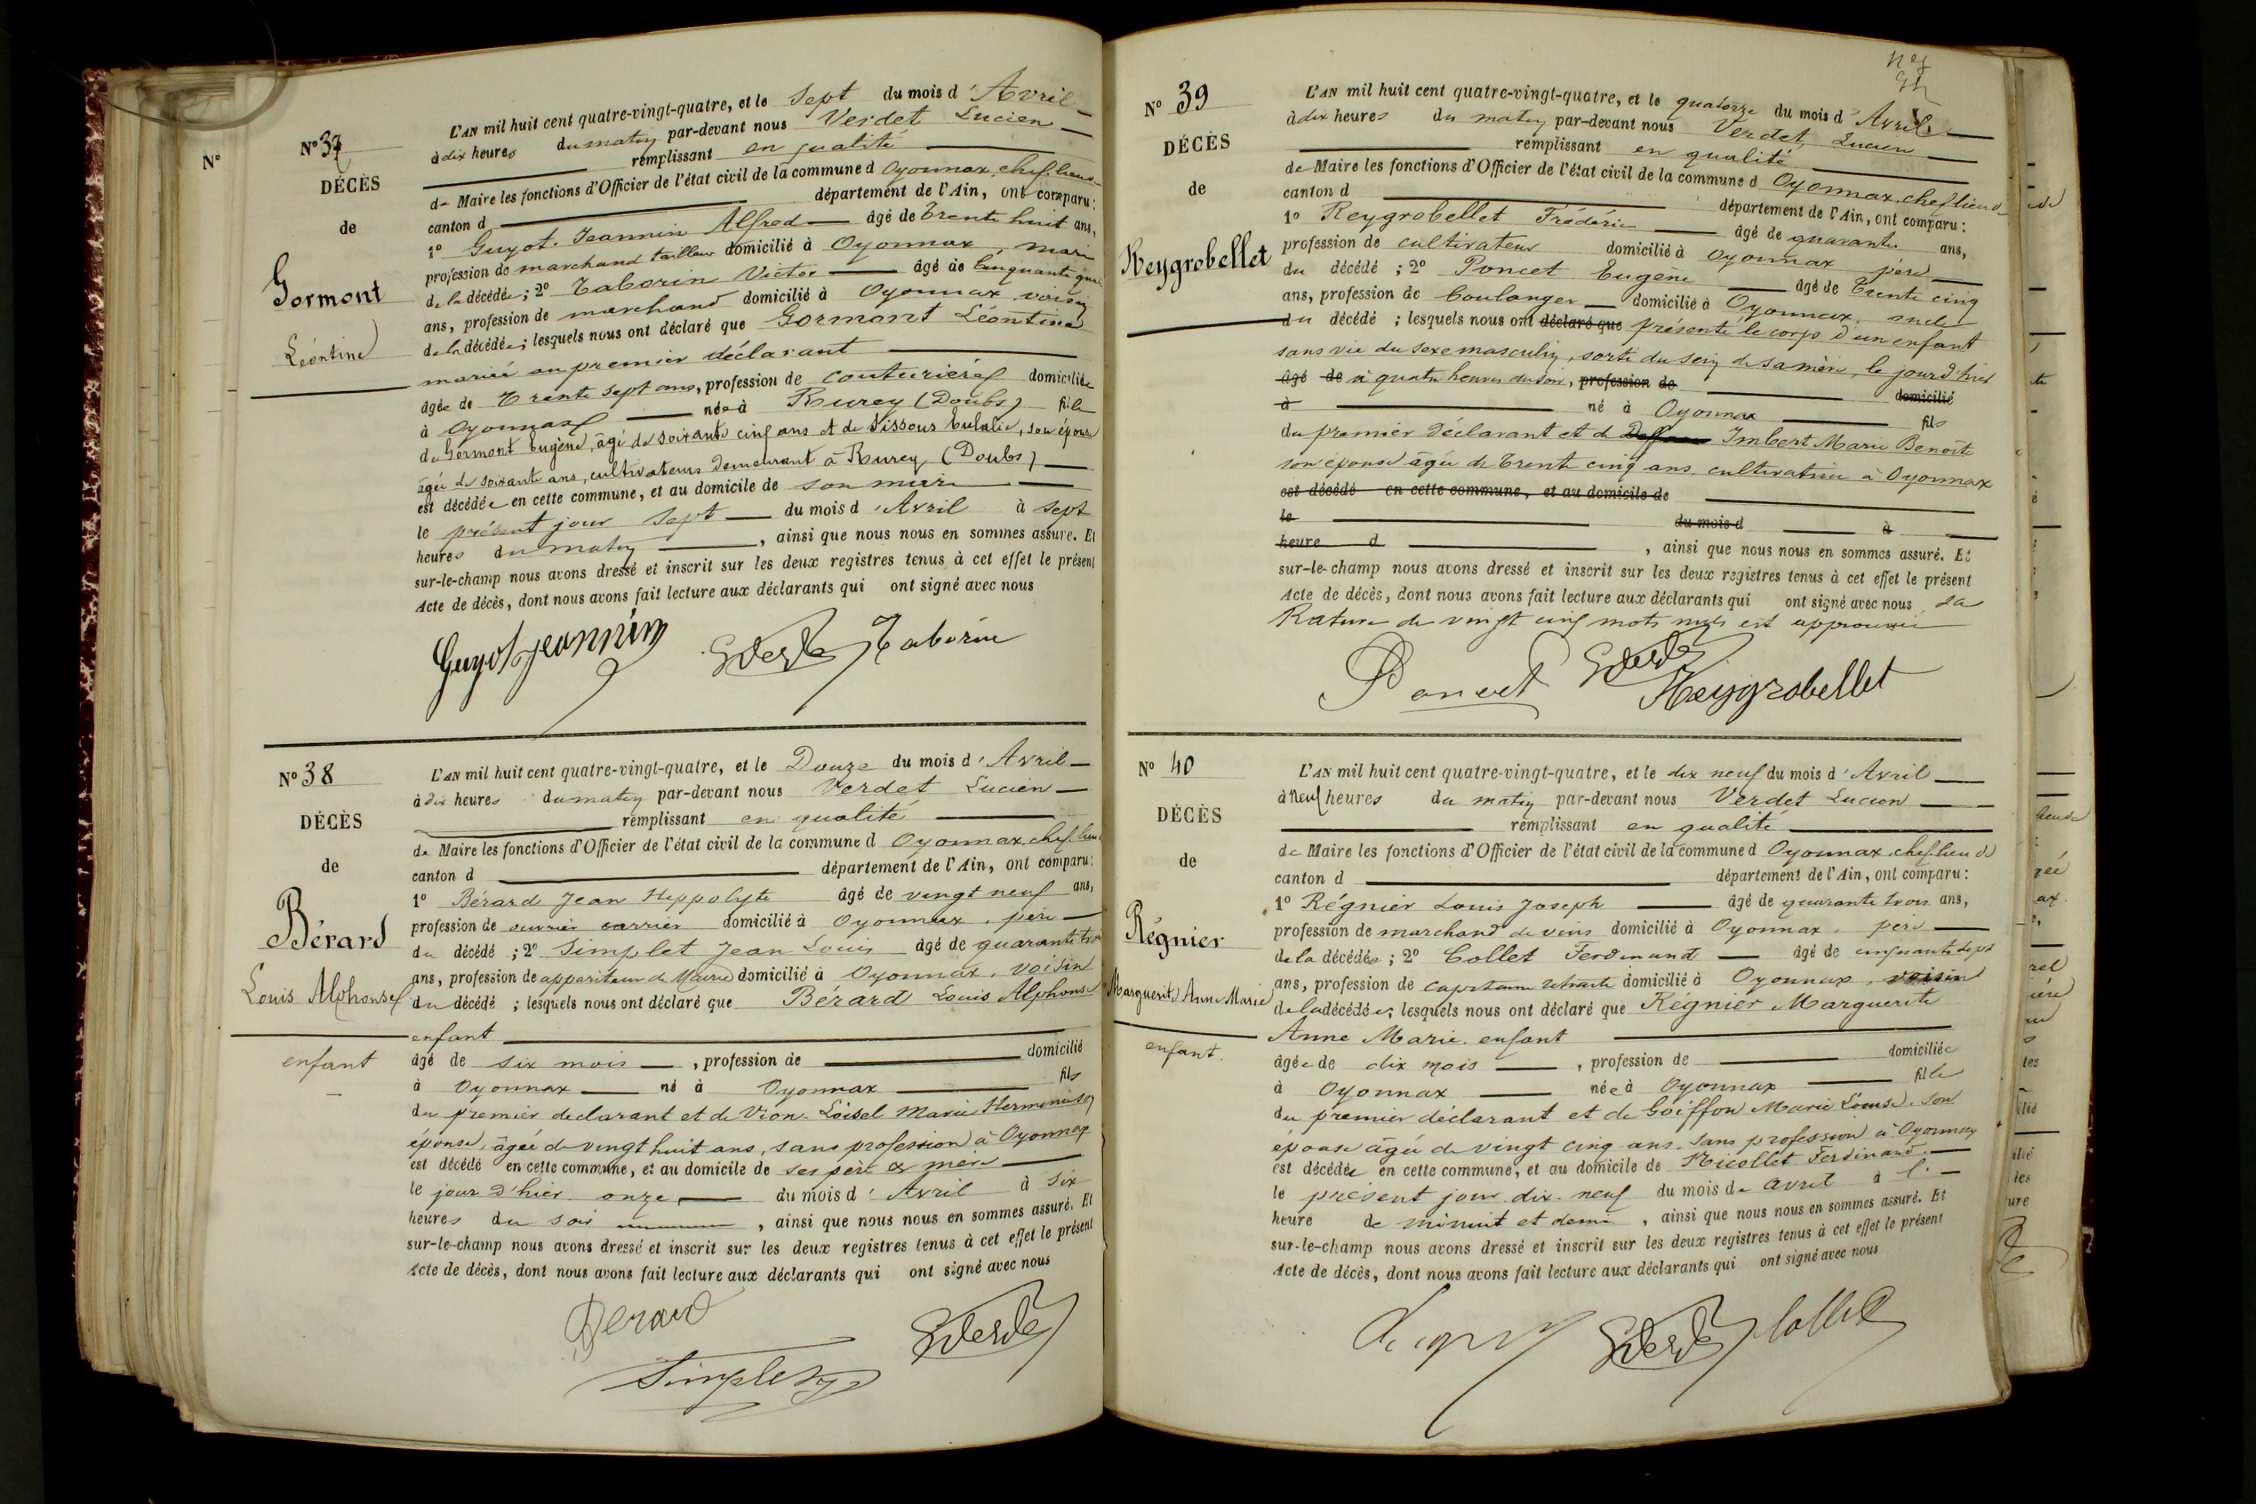 Nº
Nº 37
DÉCÈS
de
Gormont
Léontine
L'AN mil huit cent quatre-vingt-quatre, et le Sept du mois d'Avril
à dix heures du matin par-devant nous Verdet Lucien
remplissant en qualité
de Maire les fonctions d'Officier de l'état civil de la commune d Oyonnax, chef lieu de
canton d département de l'Ain, ont comparu:
1º Guyot-Jeannin Alfred âgé de trente huit ans,
profession de marchand tailleur domicilié à Oyonnax, mari
de la décédée; 2º Taborin Victor âgé de Cinquante
ans, profession de marchand domicilié à Oyonnax voisin
de la décédée; lesquels nous ont déclaré que Gormont Léontine
mariée au premier déclarant
âgée de trente sept ans, profession de couturière domiciliée
à Oyonnax née à Rurey (Doubs) fille
de Gormont Eugène, âgé de soixante cinq ans et de Vissous Eulalie, son épouse
âgée de soixante ans, cultivateurs demeurant à Rurey (Doubs)
est décédée en cette commune, et au domicile de son mari
le présent jour Sept du mois d'Avril à sept
heures du matin, ainsi que nous nous en sommes assuré. Et
sur-le-champ nous avons dressé et inscrit sur les deux registres tenus à cet effet le présent
Acte de décès, dont nous avons fait lecture aux déclarants qui ont signé avec nous
Guyot Jeannin Verdet Taborin
Nº 38
DÉCÈS
de
Bérard
Louis Alphonse
enfant
L'AN mil huit cent quatre-vingt-quatre, et le Douze du mois d'Avril
à dix heures du matin par-devant nous Verdet Lucien
remplissant en qualité
de Maire les fonctions d'Officier de l'état civil de la commune d Oyonnax, chef lieu
canton d département de l'Ain, ont comparu:
1º Bérard Jean Hippolyte âgé de vingt neuf ans,
profession de ouvrier carrier domicilié à Oyonnax, père
du décédé; 2º Simplet Jean Louis âgé de quarante trois
ans, profession de appariteur de Mairie domicilié à Oyonnax, voisin
du décédé; lesquels nous ont déclaré que Bérard Louis Alphonse
enfant
âgé de six mois, profession de domicilié
à Oyonnax né à Oyonnax fils
du premier déclarant et de Vion-Loisel Marie Herminie son
épouse, âgée de vingt huit ans, sans profession à Oyonnax
est décédé en cette commune, et au domicile de ses père & mère
le jour d'hier onze du mois d'Avril à six
heures du soir, ainsi que nous nous en sommes assuré. Et
sur-le-champ nous avons dressé et inscrit sur les deux registres tenus à cet effet le présent
Acte de décès, dont nous avons fait lecture aux déclarants qui ont signé avec nous
Berard
Simplet Verdet
Nº 39
DÉCÈS
de
Reygrobellet
L'AN mil huit cent quatre-vingt-quatre, et le quatorze du mois d'Avril
à dix heures du matin par-devant nous Verdet Lucien
remplissant en qualité
de Maire les fonctions d'Officier de l'état civil de la commune d Oyonnax, chef lieu de
canton d département de l'Ain, ont comparu:
1º Reygrobellet Frédéric âgé de quarante ans,
profession de cultivateur domicilié à Oyonnax père
du décédé; 2º Poncet Eugène âgé de trente cinq
ans, profession de boulanger domicilié à Oyonnax, oncle
du décédé; lesquels nous ont déclaré que présenté le corps d'un enfant
sans vie du sexe masculin, sorti du sein de sa mère, le jour d'hier
âgé de à quatre heures du soir, profession de domicilié
à né à Oyonnax fils
du premier déclarant et de Imbert Marie Benoîte
son épouse âgée de trente cinq ans, cultivatrice à Oyonnax
est décédé en cette commune, et au domicile de
le du mois d à
heure d, ainsi que nous nous en sommes assuré. Et
sur-le-champ nous avons dressé et inscrit sur les deux registres tenus à cet effet le présent
Acte de décès, dont nous avons fait lecture aux déclarants qui ont signé avec nous, la
Rature de vingt cinq mots nuls est approuvée
Poncet Verdet Reygrobellet
Nº 40
DÉCÈS
de
Régnier
Marguerite Anne Marie
enfant.
L'AN mil huit cent quatre-vingt-quatre, et le dix neuf du mois d'Avril
à neuf heures du matin par-devant nous Verdet Lucien
remplissant en qualité
de Maire les fonctions d'Officier de l'état civil de la commune d Oyonnax, chef lieu de
canton d département de l'Ain, ont comparu:
1º Régnier Louis Joseph âgé de quarante trois ans,
profession de marchand de vins domicilié à Oyonnax, père
de la décédée; 2º Collet Ferdinand âgé de cinquante sept
ans, profession de capitaine retraité domicilié à Oyonnax, voisin
de la décédée; lesquels nous ont déclaré que Régnier Marguerite
Anne Marie enfant
âgée de dix mois, profession de domiciliée
à Oyonnax née à Oyonnax fille
du premier déclarant et de Goiffon Marie Louise son
épouse âgée de vingt cinq ans, sans profession à Oyonnax
est décédée en cette commune, et au domicile de Nicollet Ferdinand
le présent jour dix-neuf du mois de avril à l'
heure de minuit et demi, ainsi que nous nous en sommes assuré. Et
sur-le-champ nous avons dressé et inscrit sur les deux registres tenus à cet effet le présent
Acte de décès, dont nous avons fait lecture aux déclarants qui ont signé avec nous
Verdet Collet